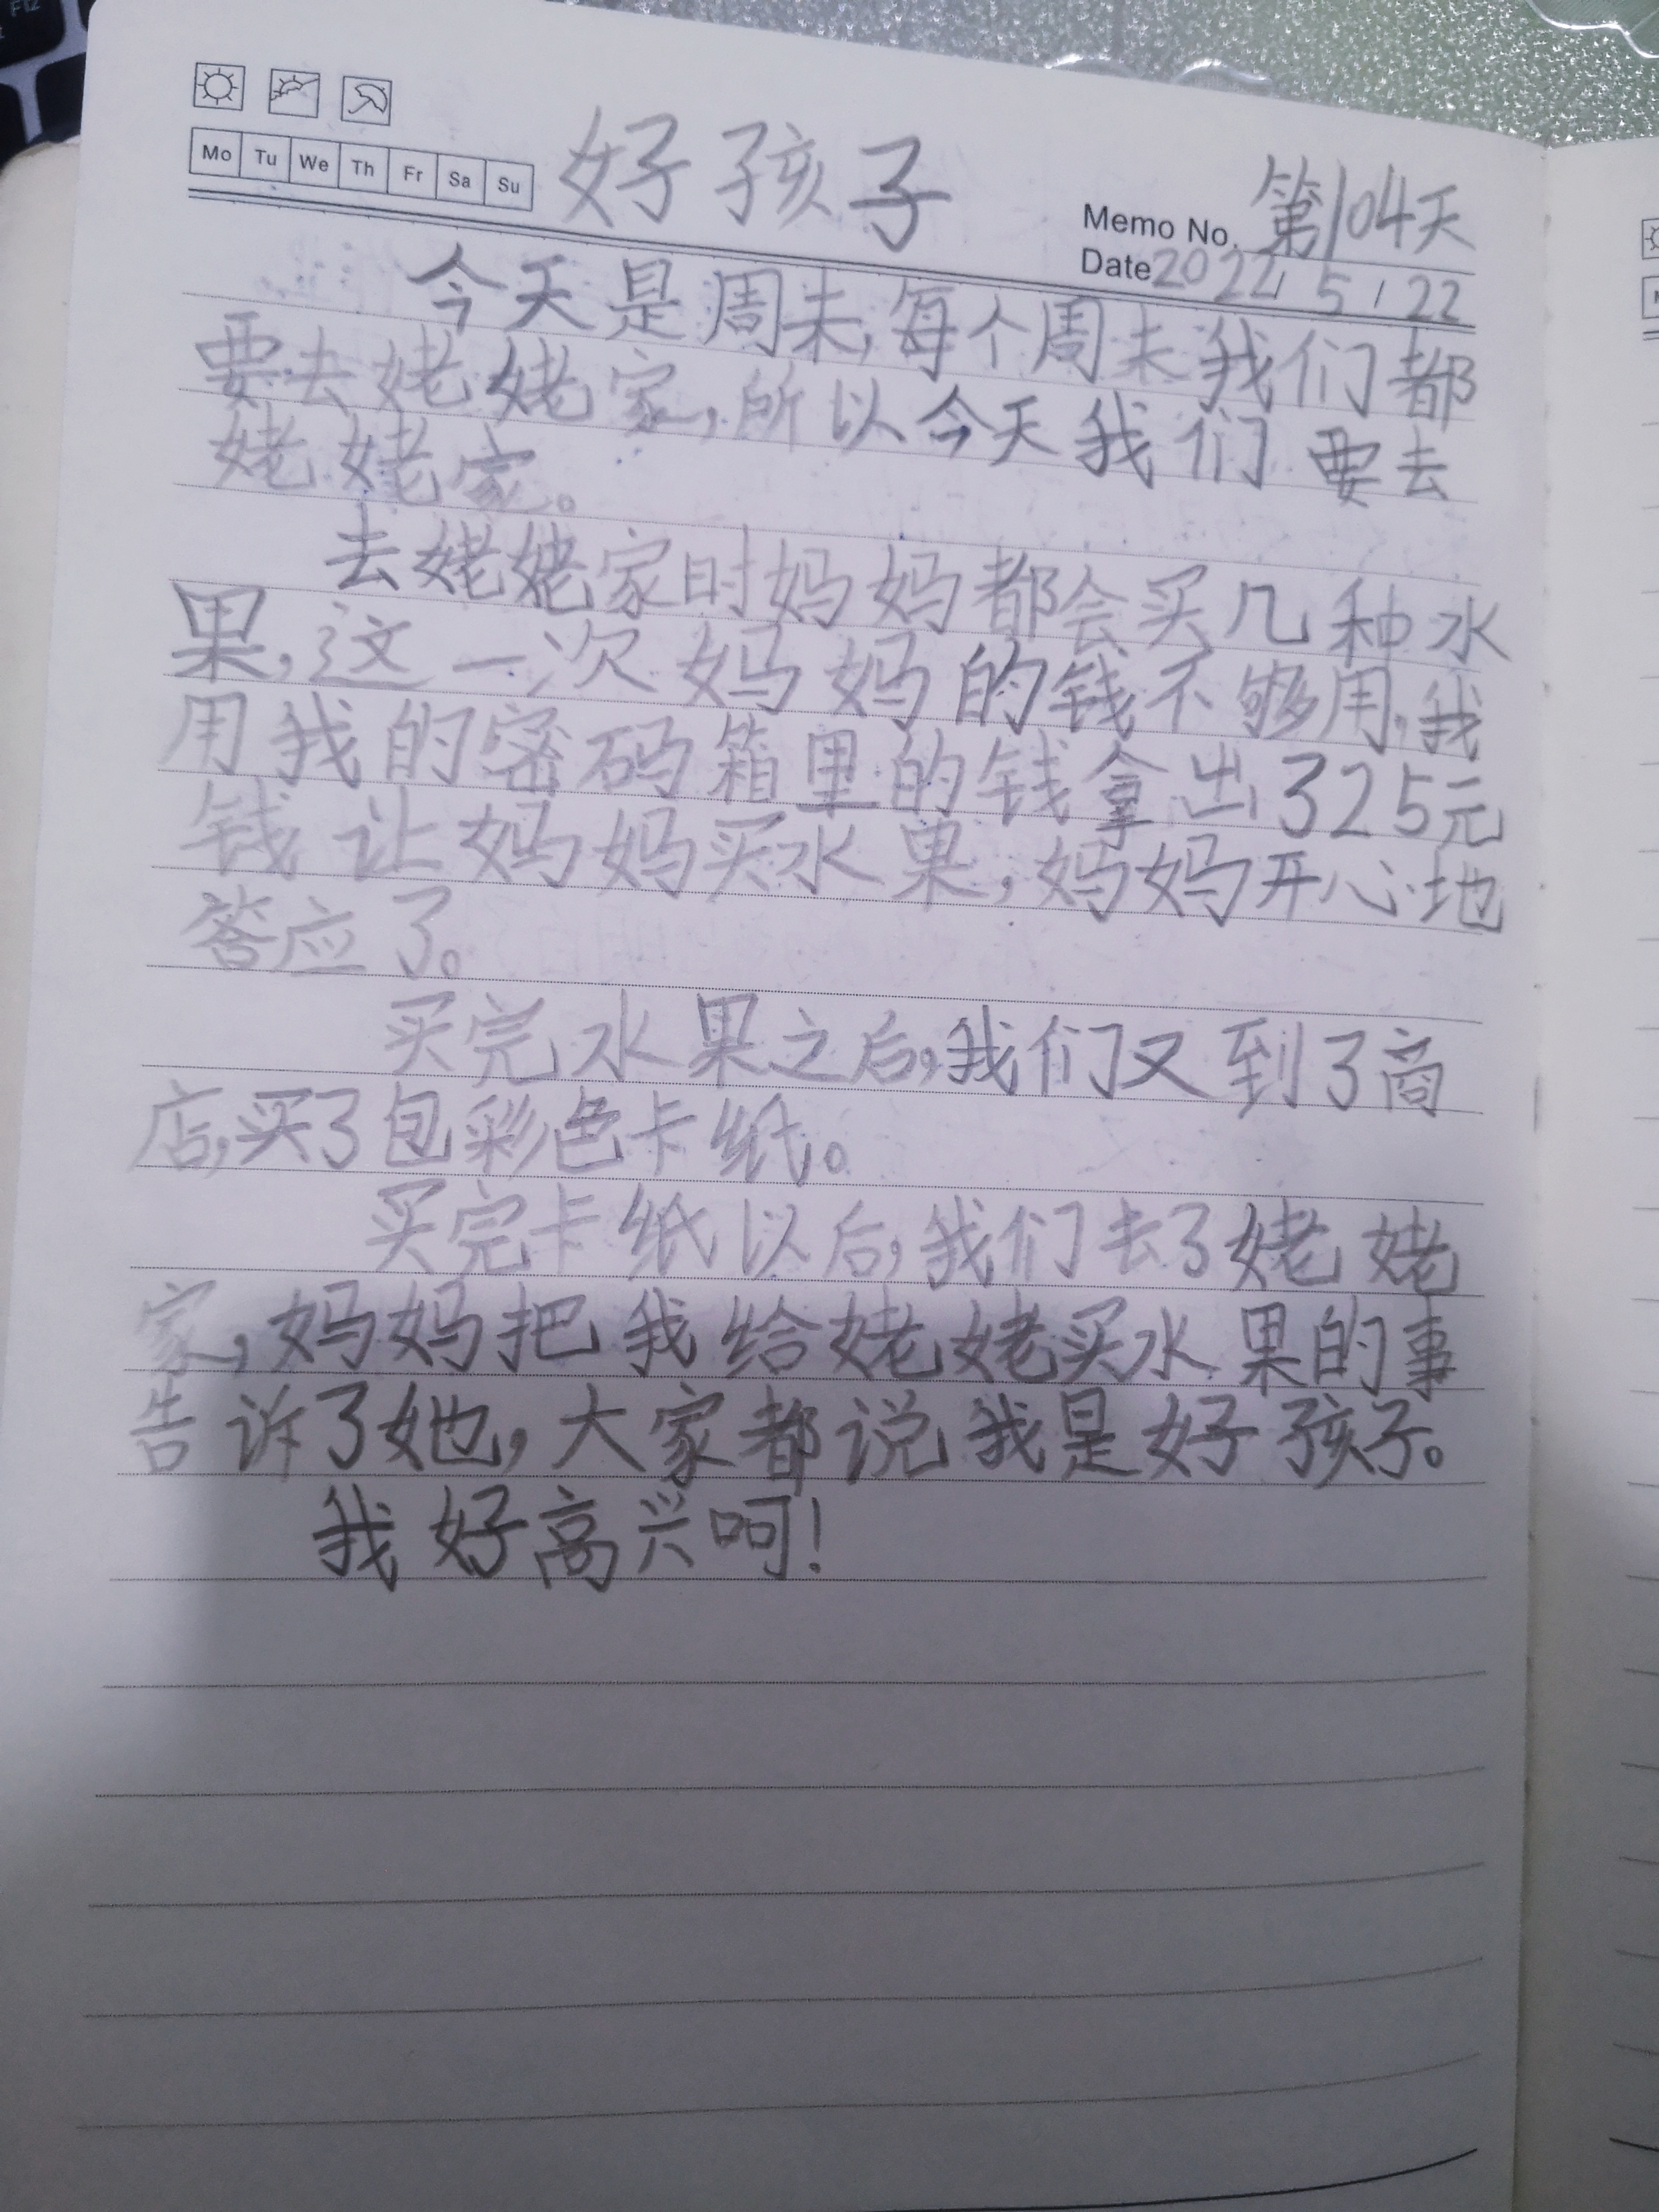 F12
Mo Tu We Th Fr Sa Su
好孩子
第104天
Memo No.
Date 2022/5/22
今天是周未,每个周未我们都
要去姥姥家,所以今天我们要去
姥姥家。
去姥姥家时妈妈都会买几种水
果,这一次妈妈的钱不够用,我
用我的密码箱里的钱拿出325元
钱让妈妈买水果,妈妈开心地
答应了。
买完水果之后,我们又到了商
店,买了包彩色卡纸。
买完卡纸以后,我们去了姥姥
家,妈妈把我给姥姥买水果的事
告诉了她,大家都说我是好孩子。
我好高兴呵!